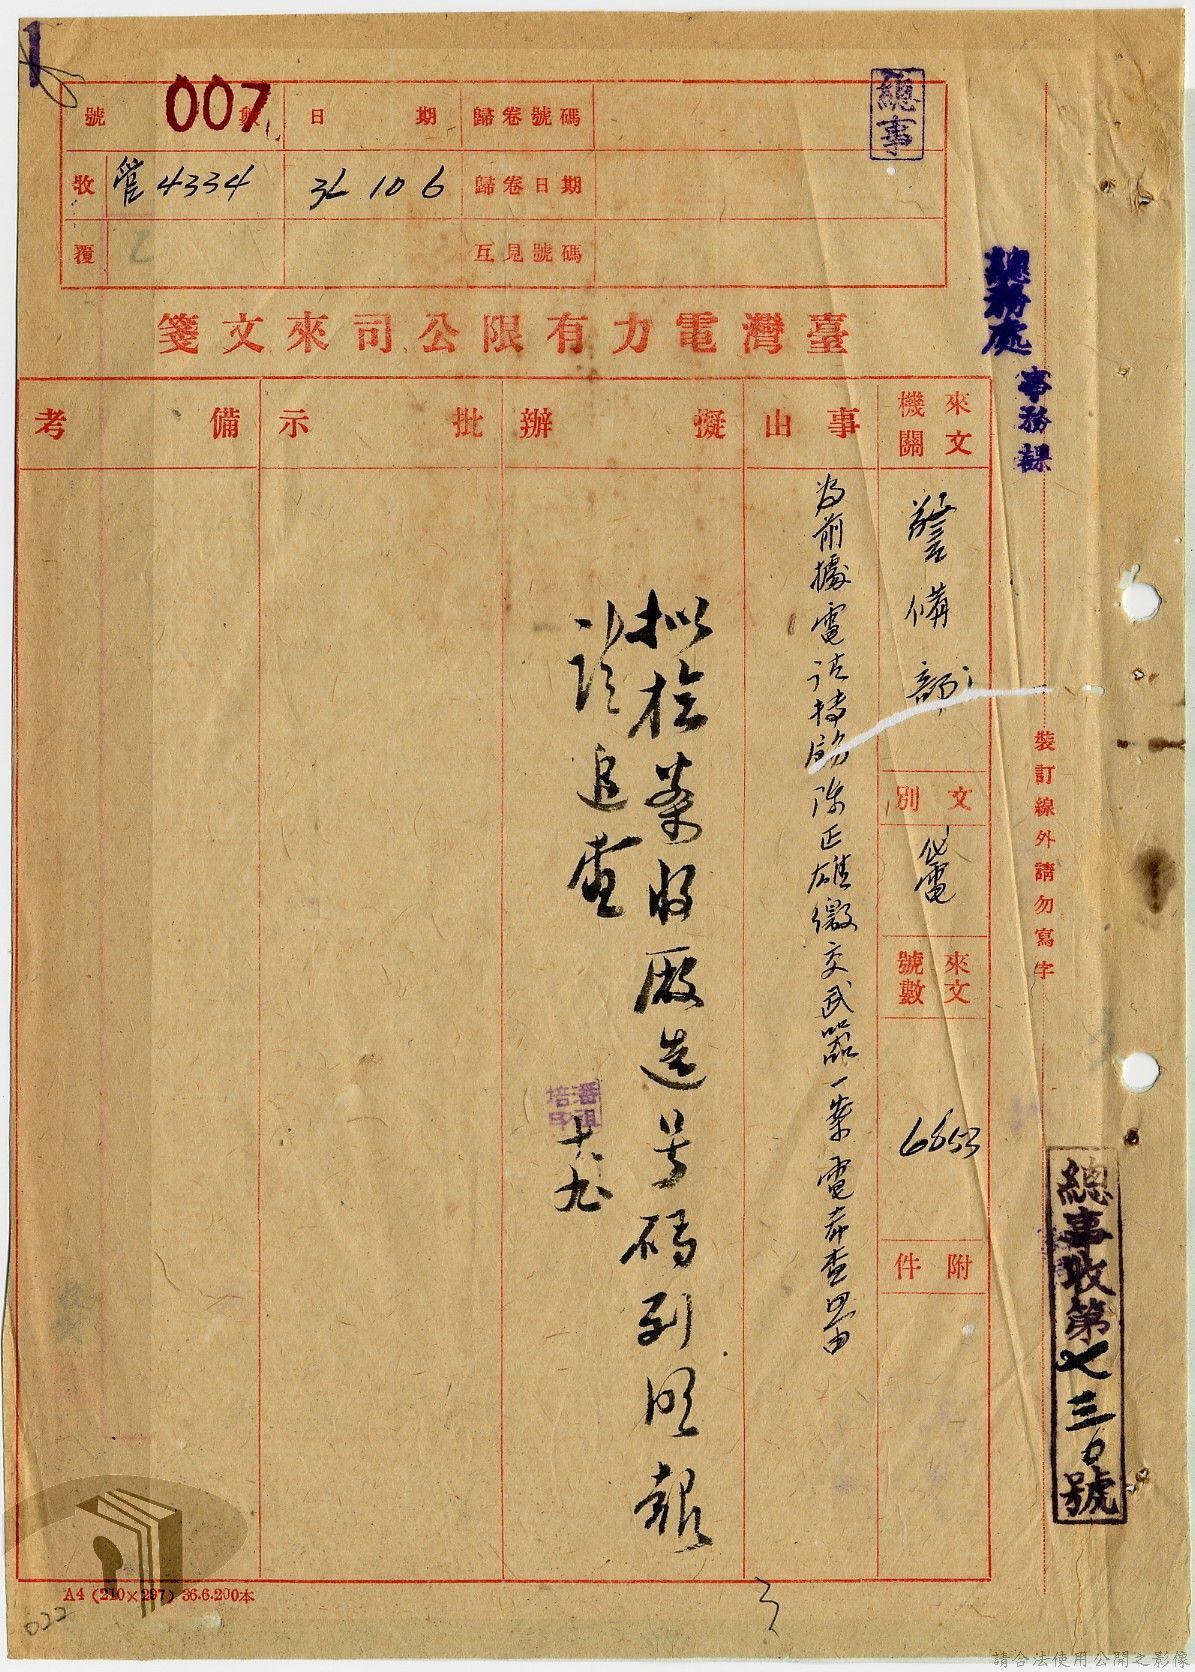 007
號數 日期 歸卷號碼
收 管4334 36 10 6 歸卷日期
覆 互見號碼
總事
總務處
事務課
臺灣電力有限公司來文箋
來文機關
警備部
文別
代電
來文號數
6853
附件
事由
為前據電請轉飭陳正雄繳交武器一案電希查照由
擬辦
拟檢案將廠造号碼列明報
請追查
潘祖培印
批示
備考
裝訂線外請勿寫字
總事收第七三0號
A4 (210×297) 36.6.200本
022
請合法使用公開之影像